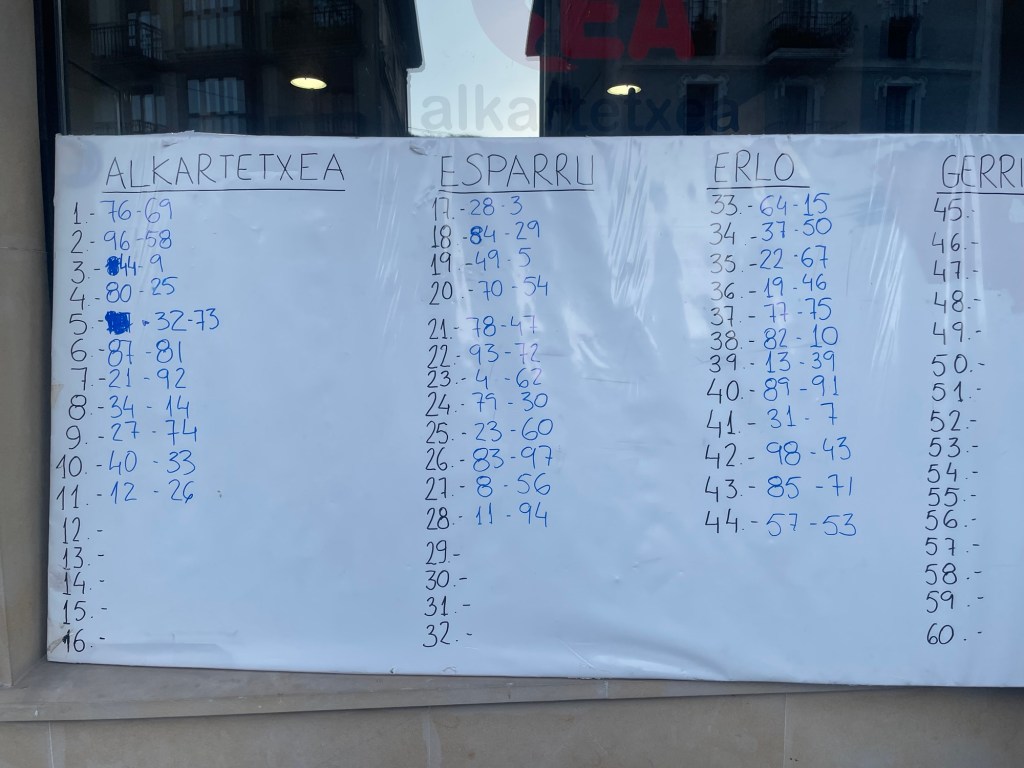 EA
alkartetxea
ALKARTETXEA
1.- 76-69
2.- 96-58
3.- 44-9
4.- 80-25
5.- 32-73
6.- 87-81
7.- 21-92
8.- 34-14
9.- 27-74
10.- 40-33
11.- 12-26
12.-
13.-
14.-
15.-
16.-
ESPARRU
17.- 28-3
18.- 84-29
19.- 49-5
20.- 70-54
21.- 78-47
22.- 93-72
23.- 4-62
24.- 79-30
25.- 23-60
26.- 83-97
27.- 8-56
28.- 11-94
29.-
30.-
31.-
32.-
ERLO
33.- 64-15
34.- 37-50
35.- 22-67
36.- 19-46
37.- 77-75
38.- 82-10
39.- 13-39
40.- 89-91
41.- 31-7
42.- 98-43
43.- 85-71
44.- 57-53
GERRI
45.-
46.-
47.-
48.-
49.-
50.-
51.-
52.-
53.-
54.-
55.-
56.-
57.-
58.-
59.-
60.-